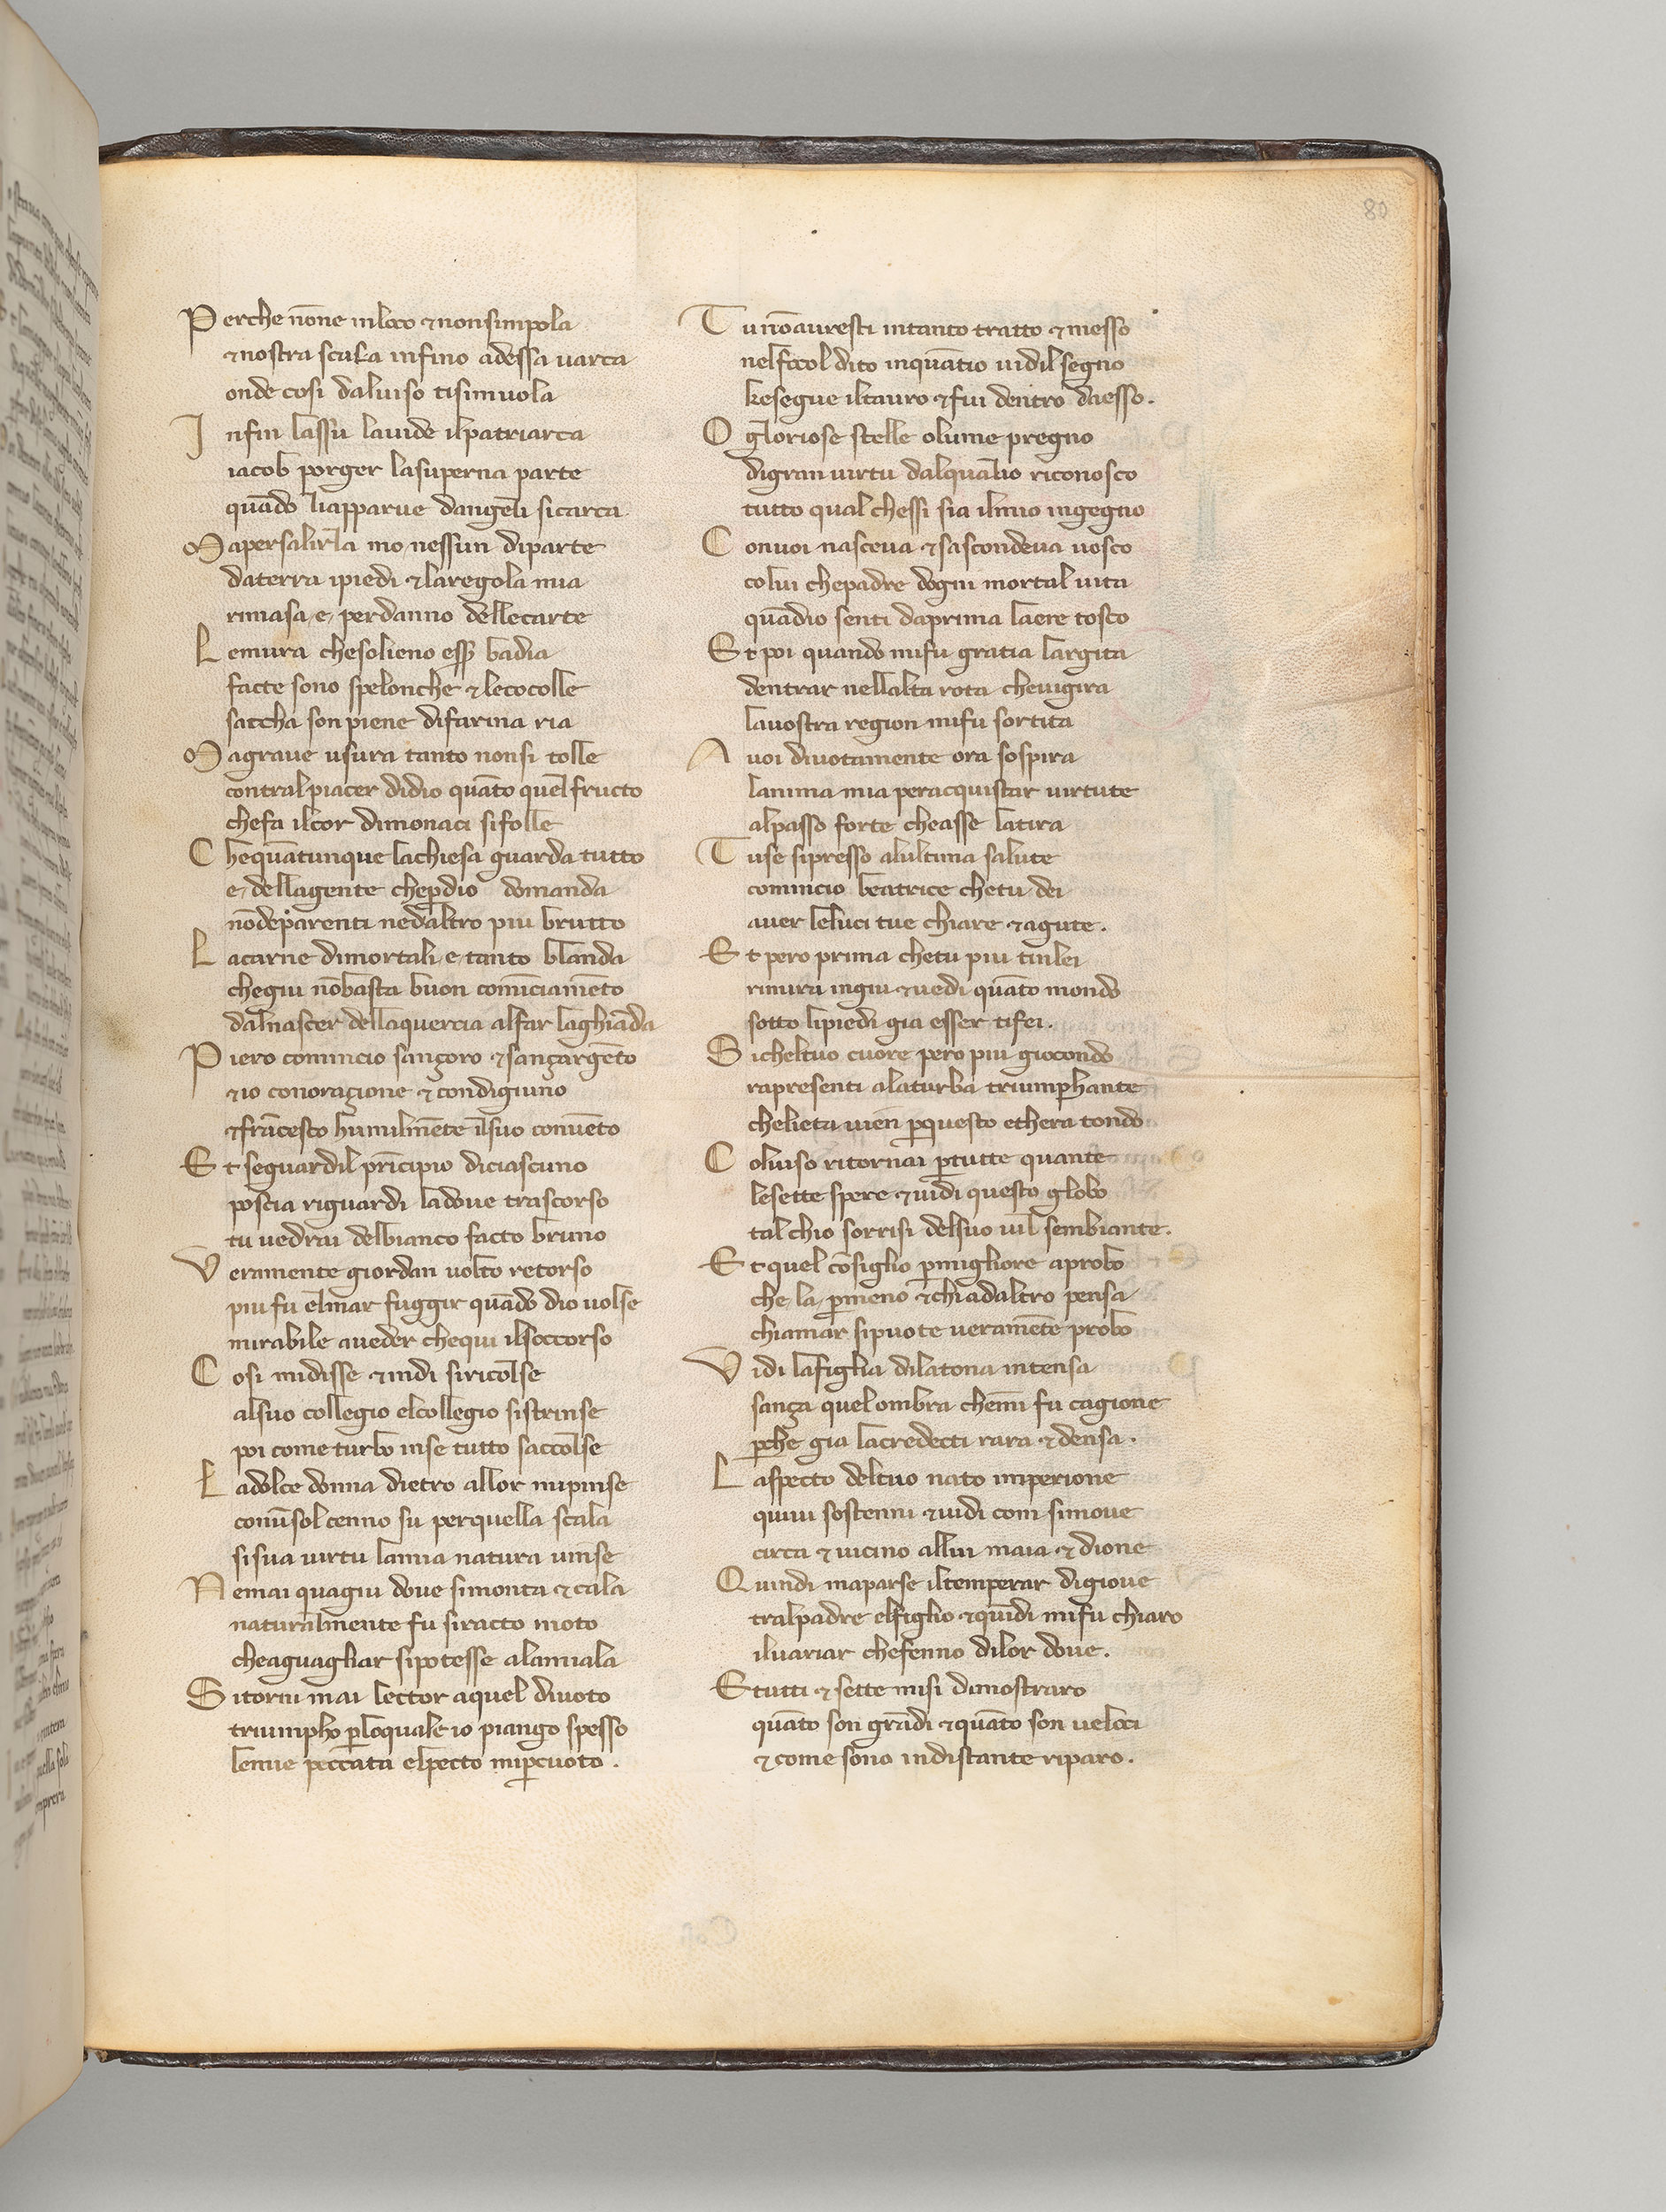 80
Perche nōne inloco ⁊nonsimpola
⁊nostra scala infino adessa uarca
onde cosi daluiso tisimuola
Infin lassu lauide ilpatriarca
iacob porger lasuperna parte
quādo liapparue dangeli sicarca
Mapersalirla mo nessun diparte
daterra ipiedi ⁊laregola mia
rimasa e perdanno dellecarte
Lemura chesolieno esser badia
facte sono spelonche ⁊lecocolle
saccha son piene difarina ria
Magraue usura tanto nonsi tolle
contral piacer didio quāto quel fructo
chefa ilcor dimonaci sifolle
Chequātunque lachiesa guarda tutto
e dellagente cheꝑdio domanda
nōdeparenti nedaltro piu brutto
Lacarne dimortali e tanto blanda
chegiu nōbasta buon cominciamēto
dalnascer dellaquercia alfar laghiāda
Piero comincio sançoro ⁊sançargēto
⁊io conoraçione ⁊condigiuno
⁊frācesco humilmēte ilsuo conuēto
Et seguardil prīcipio diciascuno
poscia riguardi ladoue trascorso
tu uedrai delbianco facto bruno
Veramente giordan uolto retorso
piu fu elmar fuggir quādo dio uolse
mirabile aueder chequi ilsoccorso
Cosi midisse ⁊indi siricolse
alsuo collegio elcollegio sistrinse
poi come turbo inse tutto saccolse
Ladolce donna dietro allor mipinse
conūsol cenno su perquella scala
sisua uirtu lamia natura uinse
Nemai quagiu doue simonta ⁊cala
naturalmente fu siracto moto
cheaguagliar sipotesse alamiala
Sitorni mai lector aquel diuoto
triumpho ꝑloquale io piango spesso
lemie peccata elpecto miꝑcuoto .
Tu nōauresti intanto tratto ⁊messo
nelfocol dito inquātio uidil segno
kesegue iltauro ⁊fui dentro daesso.
O gloriose stelle olume pregno
digran uirtu dalqualio riconosco
tutto qual chessi sia ilmio ingegno
Conuoi nasceua ⁊sascondeua uosco
colui chepadre dogni mortal uita
quādio senti daprima laere tosco
Et poi quando mifu gratia largita
dentrar nellalta rota cheuigira
lauostra region mifu sortita
A uoi diuotamente ora sospira
lanima mia peracquistar uirtute
alpasso forte cheasse latira
Tuse sipresso alultima salute
comincio beatrice chetu dei
auer leluci tue chiare ⁊agute.
Et pero prima chetu piu tinlei
rimira ingiu ⁊uedi quāto mondo
sotto lipiedi gia esser tifei.
Sicheltuo cuore pero piu giocondo
rapresenti alaturba triumphante
chelieta uien ꝑquesto ethera tondo
Coluiso ritornai ꝑtutte quante
lesette spere ⁊uidi questo globo
tal chio sorrisi delsuo uil sembiante.
Et quel cōsiglio ꝑmigliore aprobo
che la ꝑmeno ⁊chiadaltro pensa
chiamar sipuote ueramēte probo
Vidi lafiglia dilatona intensa
sança quel ombra chemi fu cagione
ꝑche gia lacredecti rara ⁊densa .
Laspecto deltuo nato imperione
quiui sostenni ⁊uidi com simoue
circa ⁊uicino allui maia ⁊dione
Quindi maparse iltemperar digioue
tralpadre elfiglio ⁊quīdi mifu chiaro
iluariar chefenno dilor doue.
Etutti ⁊sette misi dimostraro
quāto son grādi ⁊quāto son ueloci
⁊come sono indistante riparo.